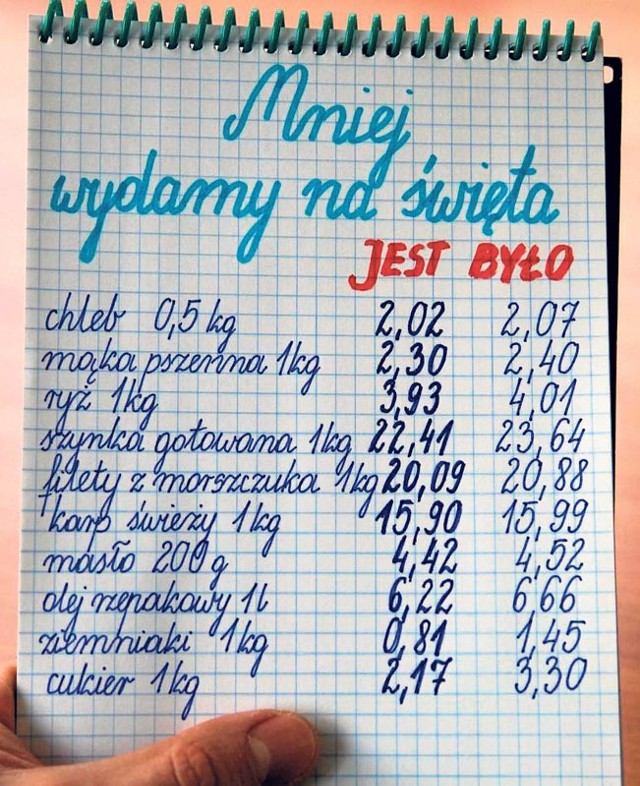 Mniej
wydamy na święta
JEST BYŁO
chleb 0,5 kg 2,02 2,07
mąka pszenna 1kg 2,30 2,40
ryż 1kg 3,93 4,01
szynka gotowana 1kg 22,41 23,64
filety z morszczuka 1kg 20,09 20,88
karp świeży 1kg 15,90 15,99
masło 200g 4,42 4,52
olej rzepakowy 1l 6,22 6,66
ziemniaki 1kg 0,81 1,45
cukier 1kg 2,17 3,30